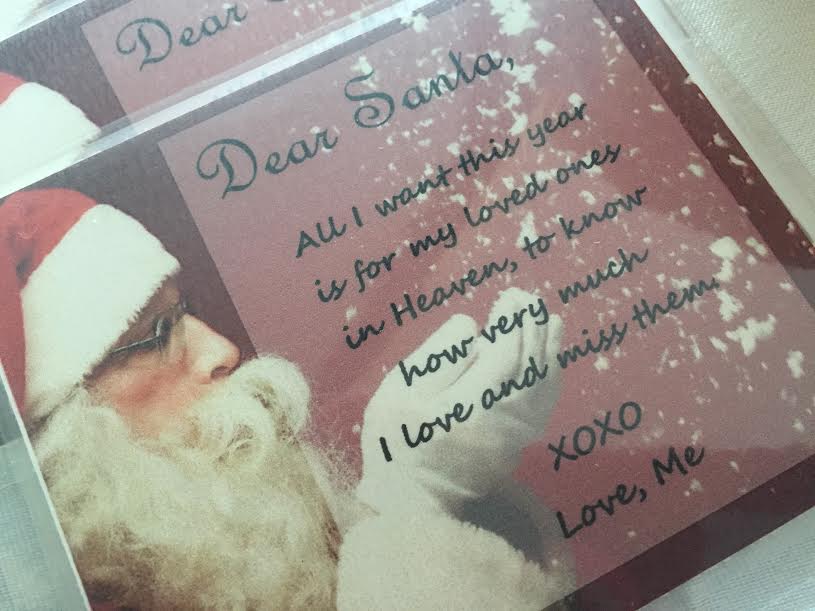 Dear
Dear Santa,
All I want this year
is for my loved ones
in Heaven, to know
how very much
I love and miss them.
XOXO
Love, Me